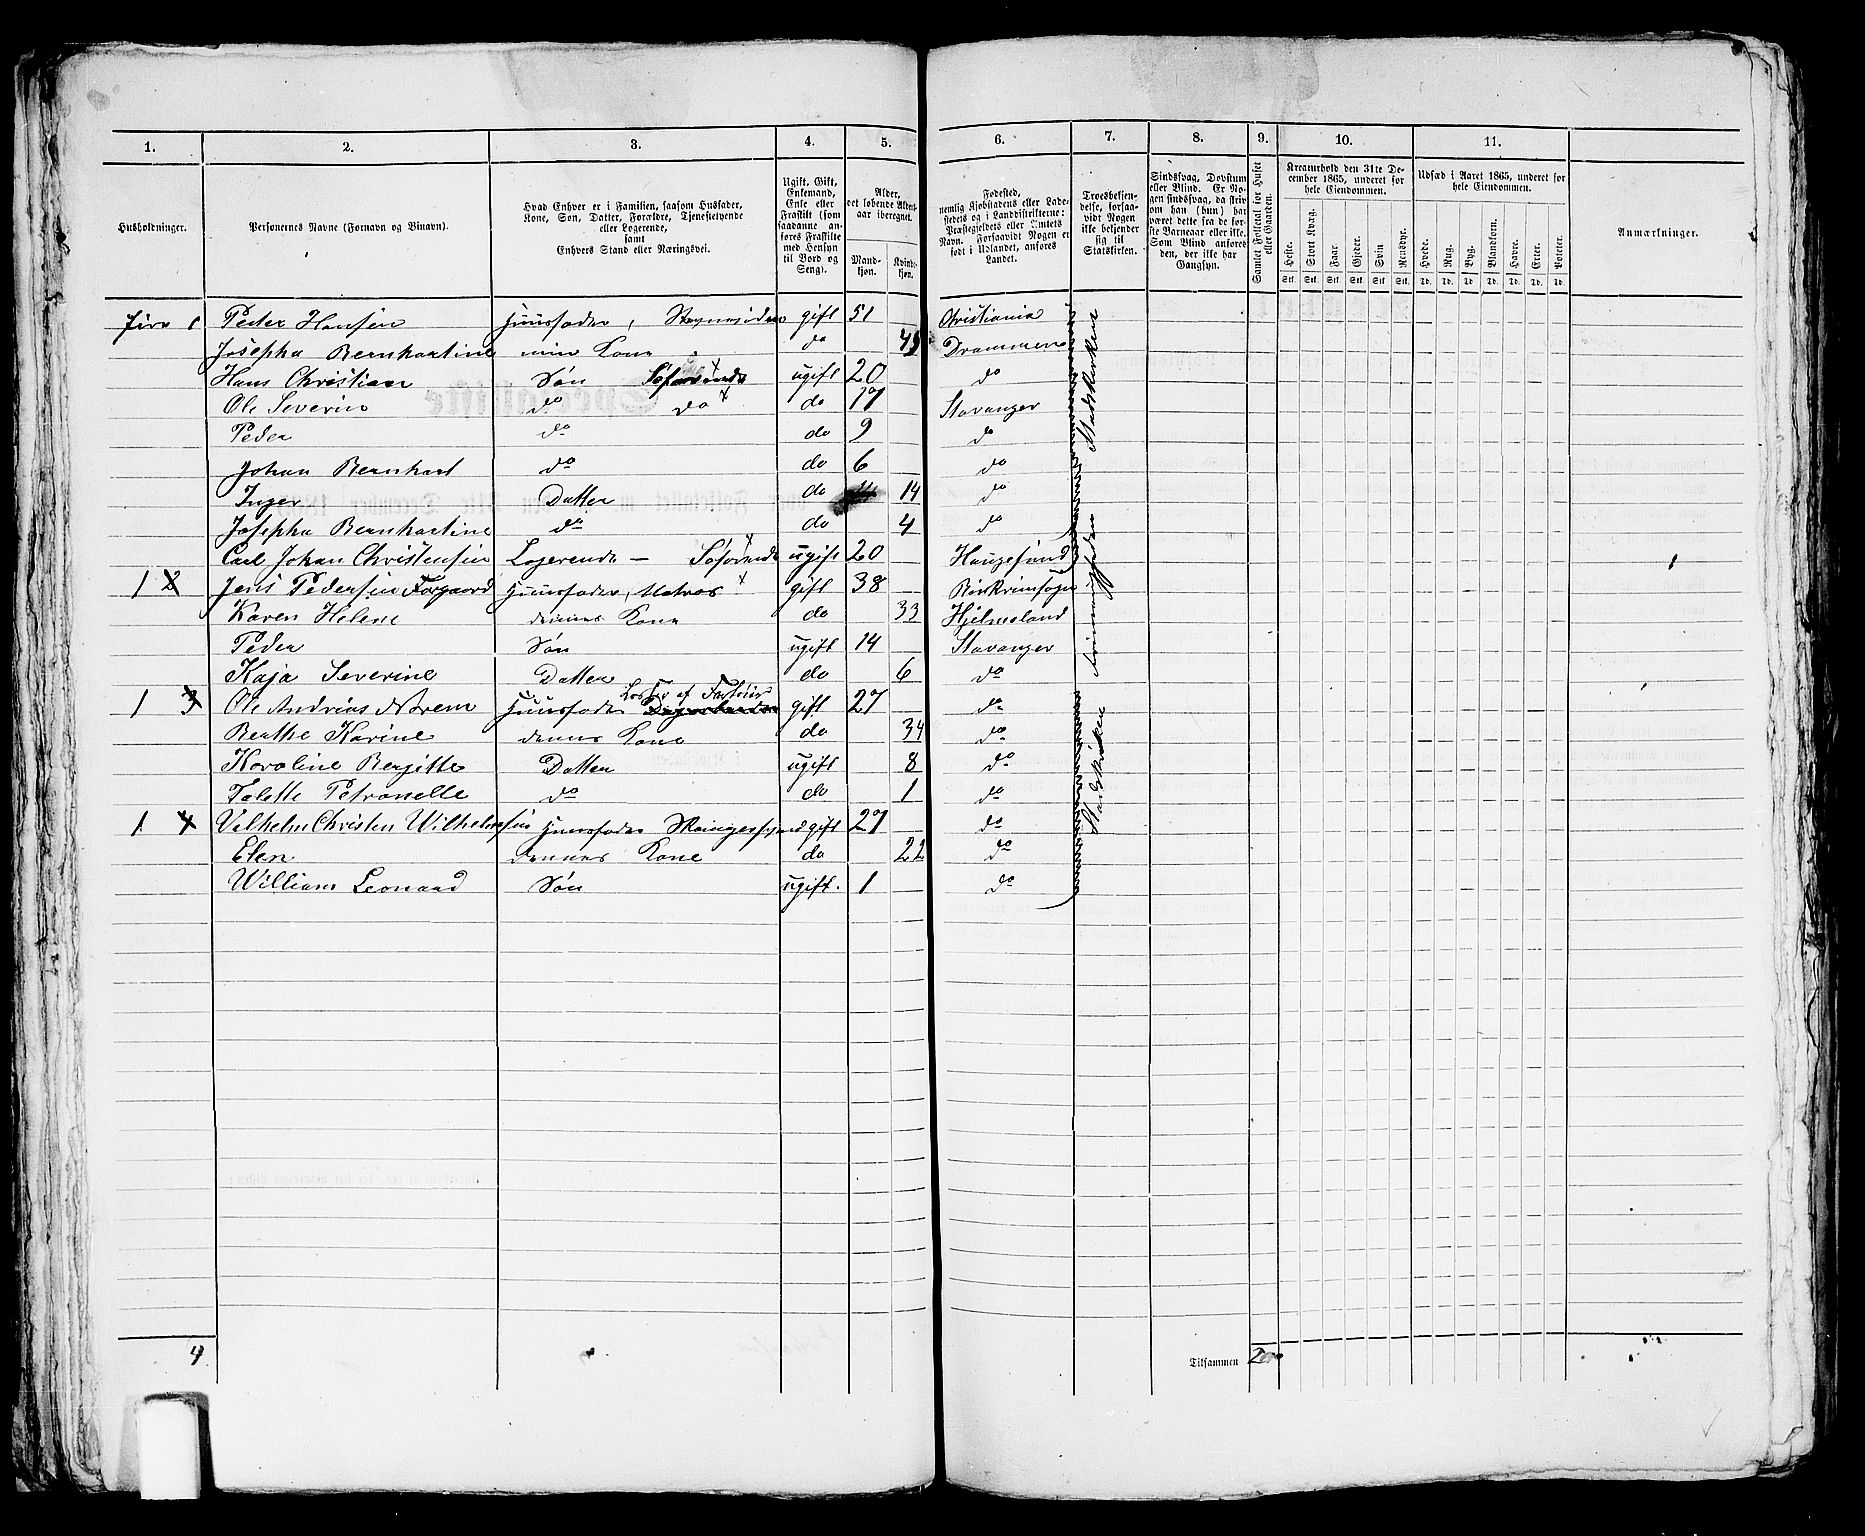 1. 2. 3. 4. 5. 6. 7. 8. 9. 10. 11.
Husholdninger.
Personernes Navne (Fornavn og Binavn).
Hvad Enhver er i Familien, saasom Husfader,
Kone, Søn, Datter, Forældre, Tjenestetyende
eller Logerende,
samt
Enhvers Stand eller Næringsvei.
Ugift, Gift,
Enkemand,
Enke eller
Fraskilt (som
saadanne an-
føres Fraskilte
med Hensyn
til Bord og
Seng).
Alder,
det løbende Alders-
aar iberegnet.
Mand-
kjøn.
Kvind-
kjøn.
Fødested,
nemlig Kjøbstadens eller Lade-
stedets og i Landdistrikterne:
Præstegjeldets eller Amtets
Navn. Forsaavidt Nogen er
født i Udlandet, anføres
Landet.
Troesbekjen-
delse, forsaa-
vidt Nogen
ikke bekjender
sig til
Statskirken.
Sindssvag, Døvstum
eller Blind. Er No-
gen sindssvag, da skriv
om han (hun) har
været dette fra de før-
ste Barneaar eller ikke.
Som Blind anføres
den, der ikke har
Gangsyn.
Samlet Folketal for Huset
eller Gaarden.
Kreaturhold den 31te De-
cember 1865, underet for
hele Eiendommen.
Heste. Stort Kvæg. Faar. Gjeder. Svin Rensdyr.
Stk. Stk. Stk. Stk. Stk. Stk.
Udsæd i Aaret 1865, underet for
hele Eiendommen.
Hvede. Rug. Byg. Blandkorn. Havre. Erter. Poteter.
Td. Td. Td. Td. Td. Td. Td.
Anmærkninger.
1 Peder Hansen Huusfader, gift 51 Christiania
Josepha Bernhartine min Kone do Drammen
Hans Christian Søn Søfarende ugift 20 do
Ole Severin do do do 17 Stavanger
Peder do do 9 do
Johan Bernhart do do 6 do
Inger Datter do 14 do
Josepha Bernhartine do do 4 do
Carl Johan Christensen Logerende — Søfarende ugift 20 Haugesund
1 2 Jens Pedersen Huusfader, Matros gift 38
Karen Helene dennes Kone do 33 Hjelmeland
Peder Søn ugift 14 Stavanger
Kaja Severine Datter do 6 do
1 3 Ole Andreas Huusfader gift 27 do
Berthe Karine dennes Kone do 34 do
Karoline Bergitte Datter ugift 8 do
Talette Petronelle do do 1 do
1 4 Vilhelm Christen Wilhelmsen Huusfader gift 27 do
Elen dennes Kone do 22 do
William Leonard Søn ugift. 1 do
4
Tilsammen 20